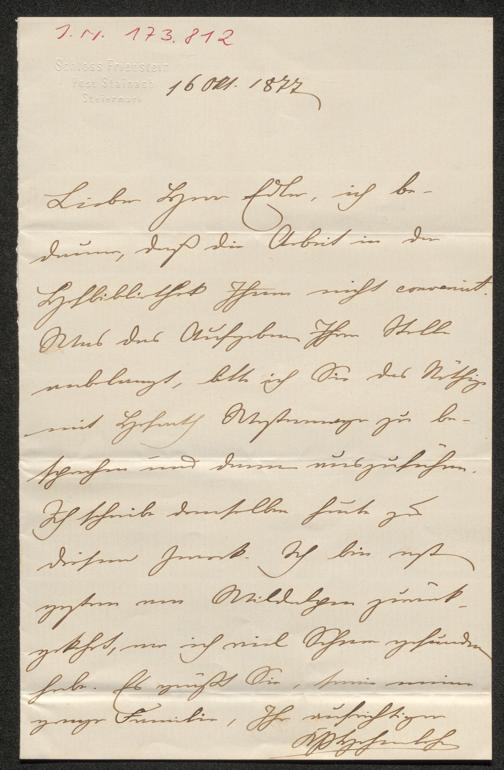 I.N. 173.812
Schloss Friedstein
Post Stainach
Steiermark
16 Okt. 1877
Lieber Herr Edler, ich be-
daure, daß die Arbeit in der
Hofbibliothek Ihnen nicht convenirt.
Was das Aufgeben Ihrer Stelle
anbelangt, bitte ich Sie das Nöthige
mit Hofrath zu be-
sprechen und dann auszuführen.
Ich schreibe demselben heute zu
diesem Zweck. Ich bin erst
gestern von Wildalpen zurück-
gekehrt, wo ich viel Schnee gefunden
habe. Es grüßt Sie, sowie meine
ganze Familie, Ihr aufrichtiger